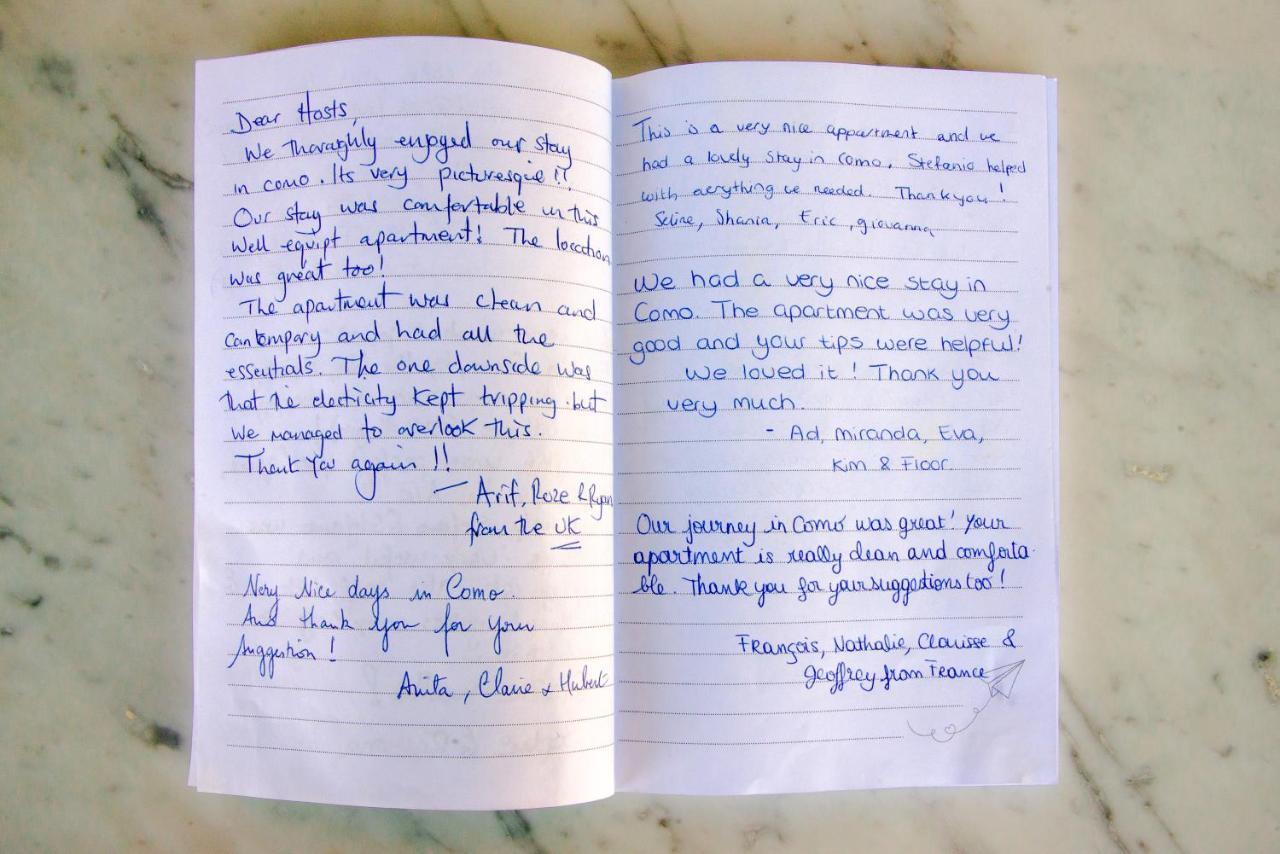 Dear Hosts,
We thoraghly enjoyed our stay
in como. Its very picturesque!!
Our stay was comfortable in this
well equipt apartment! The location
was great too!
The apartment was clean and
contempary and had all the
essentials. The one downside was
that the electicity kept tripping but
we managed to overlook this.
Thank you again!!
— Arif, Roze & Ryan
from the UK
Very Nice days in Como.
And thank you for your
suggestion!
Anita, Claire & Hubert
This is a very nice appartment and we
had a lovely stay in como. Stefania helped
with everything we needed. Thank you!
Shania, Eric, giovanna
We had a very nice stay in
Como. The apartment was very
good and your tips were helpful!
We loved it! Thank you
very much.
- Ad, miranda, Eva,
Kim & Floor.
Our journey in Como was great! Your
apartment is really clean and comforta
ble. Thank you for your suggestions too!
François, Nathalie, Clarisse &
Geoffrey from France